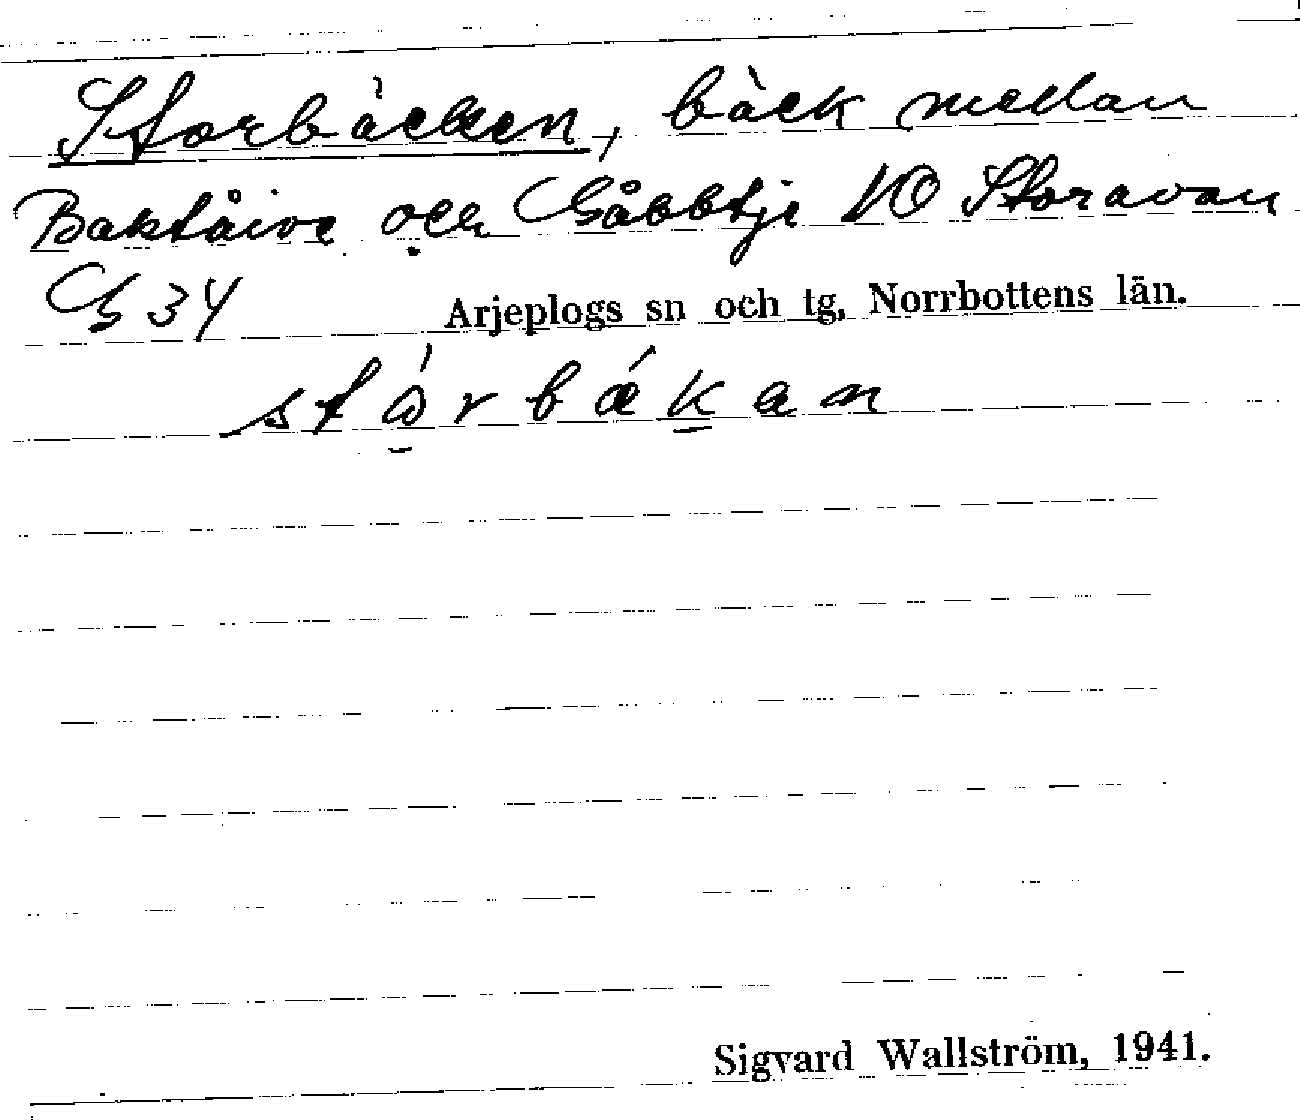 Storbäcken, bäck mellan
Baktåive och Gåbbtje NO Storavan
G 34 Arjeplogs sn och tg, Norrbottens län.
stårbäkan
Sigvard Wallström, 1941.